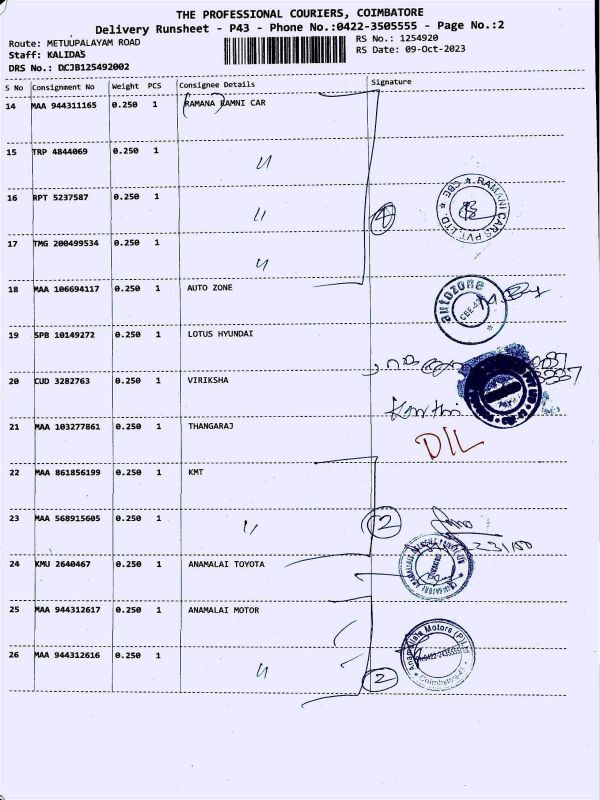 THE PROFESSIONAL COURIERS, COIMBATORE
Delivery Runsheet - P43 - Phone No.:0422-3505555 - Page No.:2
Route: METUUPALAYAM ROAD RS No.: 1254920
Staff: KALIDAS RS Date: 09-Oct-2023
DRS No.: DCJB125492002
S No Consignment No Weight PCS Consignee Details Signature
14 MAA 944311165 0.250 1 RAMANA RAMNI CAR
15 TRP 4844069 0.250 1 〃
16 RPT 5237587 0.250 1 〃
4
CBE ★ RAMANI CARS PVT. LTD. ★
17 TMG 200499534 0.250 1 〃
18 MAA 106694117 0.250 1 AUTO ZONE
autozone
19 SPB 10149272 0.250 1 LOTUS HYUNDAI
20 CUD 3282763 0.250 1 VIRIKSHA
21 MAA 103277861 0.250 1 THANGARAJ
D/L
22 MAA 861856199 0.250 1 KMT
23 MAA 568915605 0.250 1 〃
2
24 KMU 2640467 0.250 1 ANAMALAI TOYOTA
25 MAA 944312617 0.250 1 ANAMALAI MOTOR
26 MAA 944312616 0.250 1 〃
2